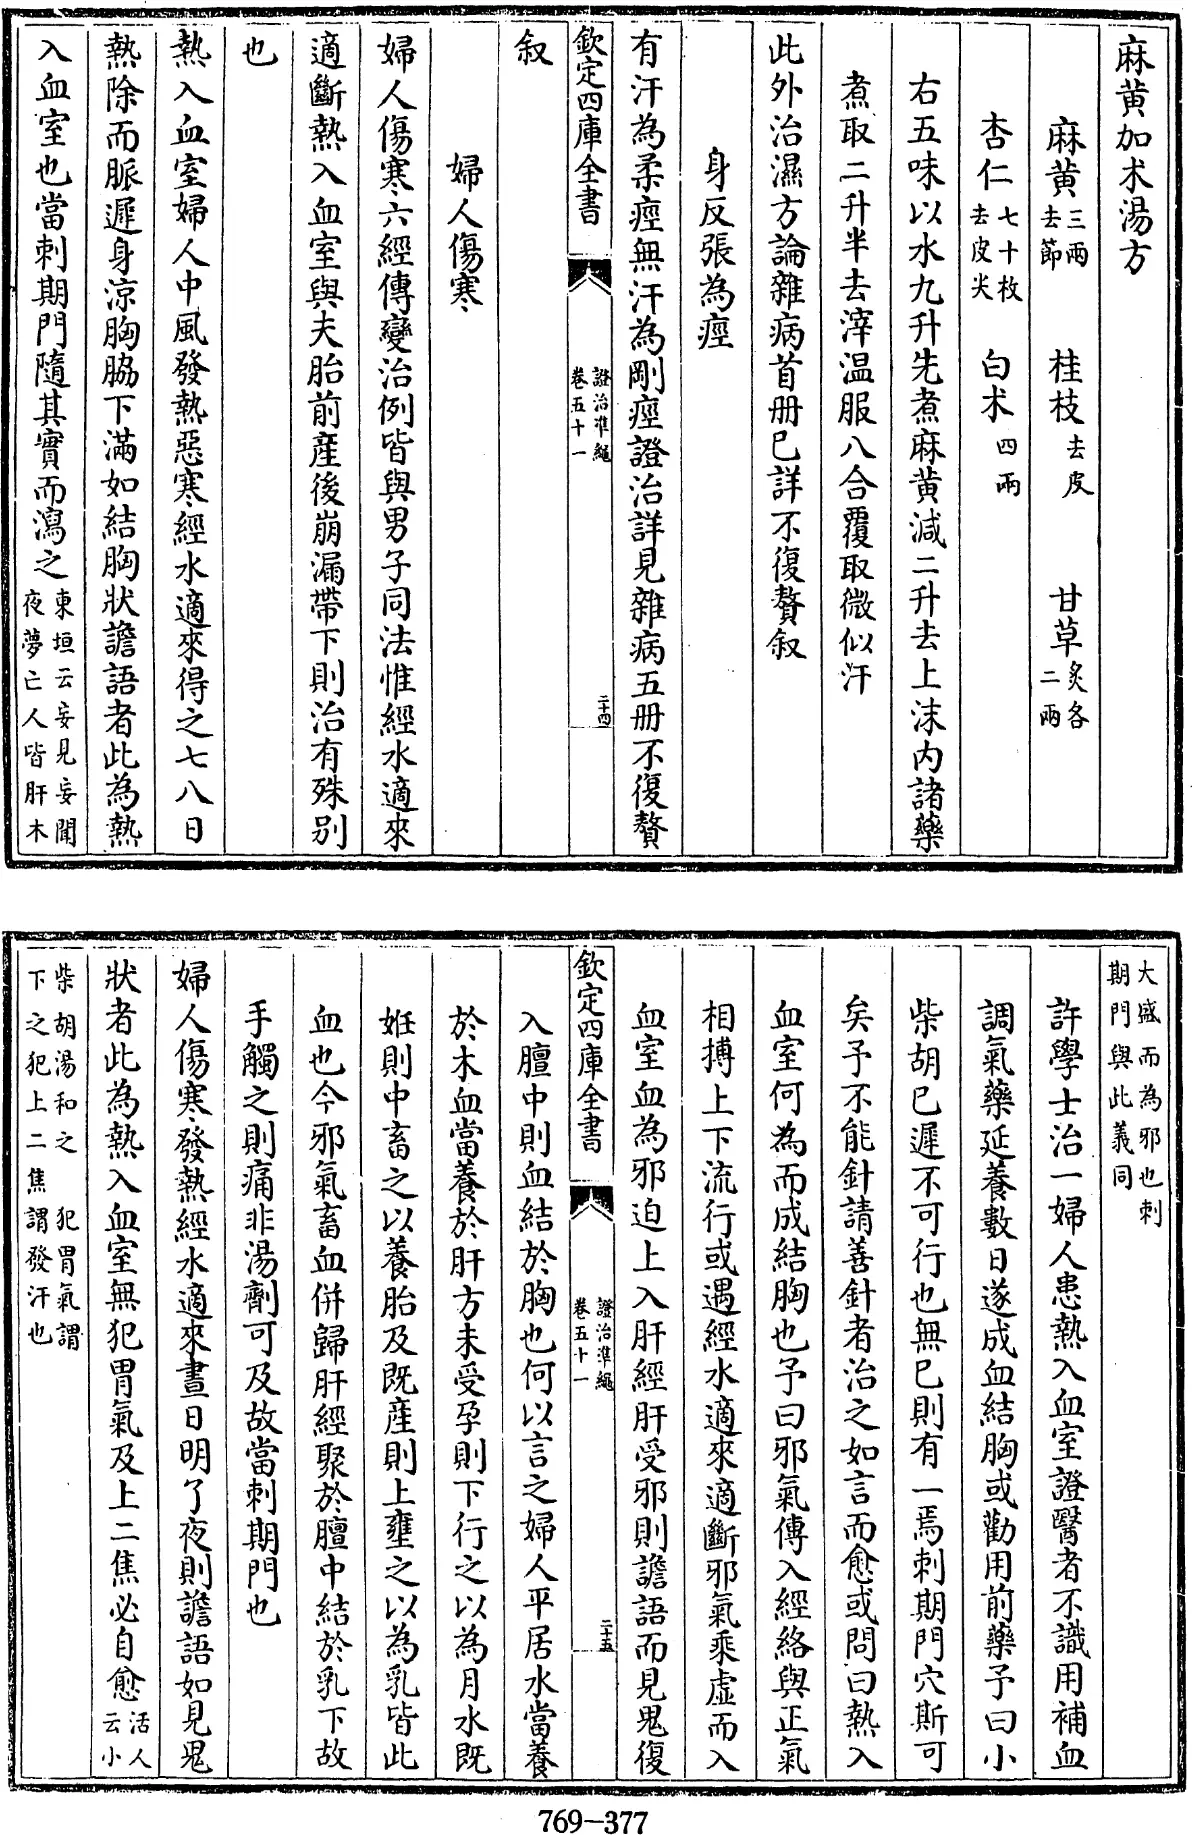 麻黄加术湯方
麻黄三兩去節 桂枝去皮 甘草炙各二兩
杏仁七十枚去皮尖 白术四兩
右五味以水九升先煮麻黄減二升去上沫内諸藥
煮取二升半去滓温服八合覆取微似汗
此外治濕方論雜病首册已詳不復贅叙
身反張為痙
有汗為柔痙無汗為剛痙證治詳見雜病五册不復贅
欽定四庫全書 證治準繩卷五十一 二十四
叙
婦人傷寒
婦人傷寒六經傳變治例皆與男子同法惟經水適來
適斷熱入血室與夫胎前産後崩漏帶下則治有殊别
也
熱入血室婦人中風發熱惡寒經水適來得之七八日
熱除而脈遲身涼胸脇下滿如結胸狀譫語者此為熱
入血室也當刺期門隨其實而瀉之東垣云妄見妄聞夜夢亡人皆肝木
大盛而為邪也刺期門與此義同
許學士治一婦人患熱入血室證醫者不識用補血
調氣藥延養數日遂成血結胸或勸用前藥予曰小
柴胡已遲不可行也無已則有一焉刺期門穴斯可
矣予不能針請善針者治之如言而愈或問曰熱入
血室何為而成結胸也予曰邪氣傳入經絡與正氣
相搏上下流行或遇經水適來適斷邪氣乘虚而入
血室血為邪迫上入肝經肝受邪則譫語而見鬼復
欽定四庫全書 證治準繩卷五十一 二十五
入膻中則血結於胸也何以言之婦人平居水當養
於木血當養於肝方未受孕則下行之以為月水既
姙則中畜之以養胎及既産則上壅之以為乳皆此
血也今邪氣畜血併歸肝經聚於膻中結於乳下故
手觸之則痛非湯劑可及故當刺期門也
婦人傷寒發熱經水適來晝日明了夜則譫語如見鬼
狀者此為熱入血室無犯胃氣及上二焦必自愈活人云小
柴胡湯和之 犯胃氣謂下之犯上二焦謂發汗也
769-377